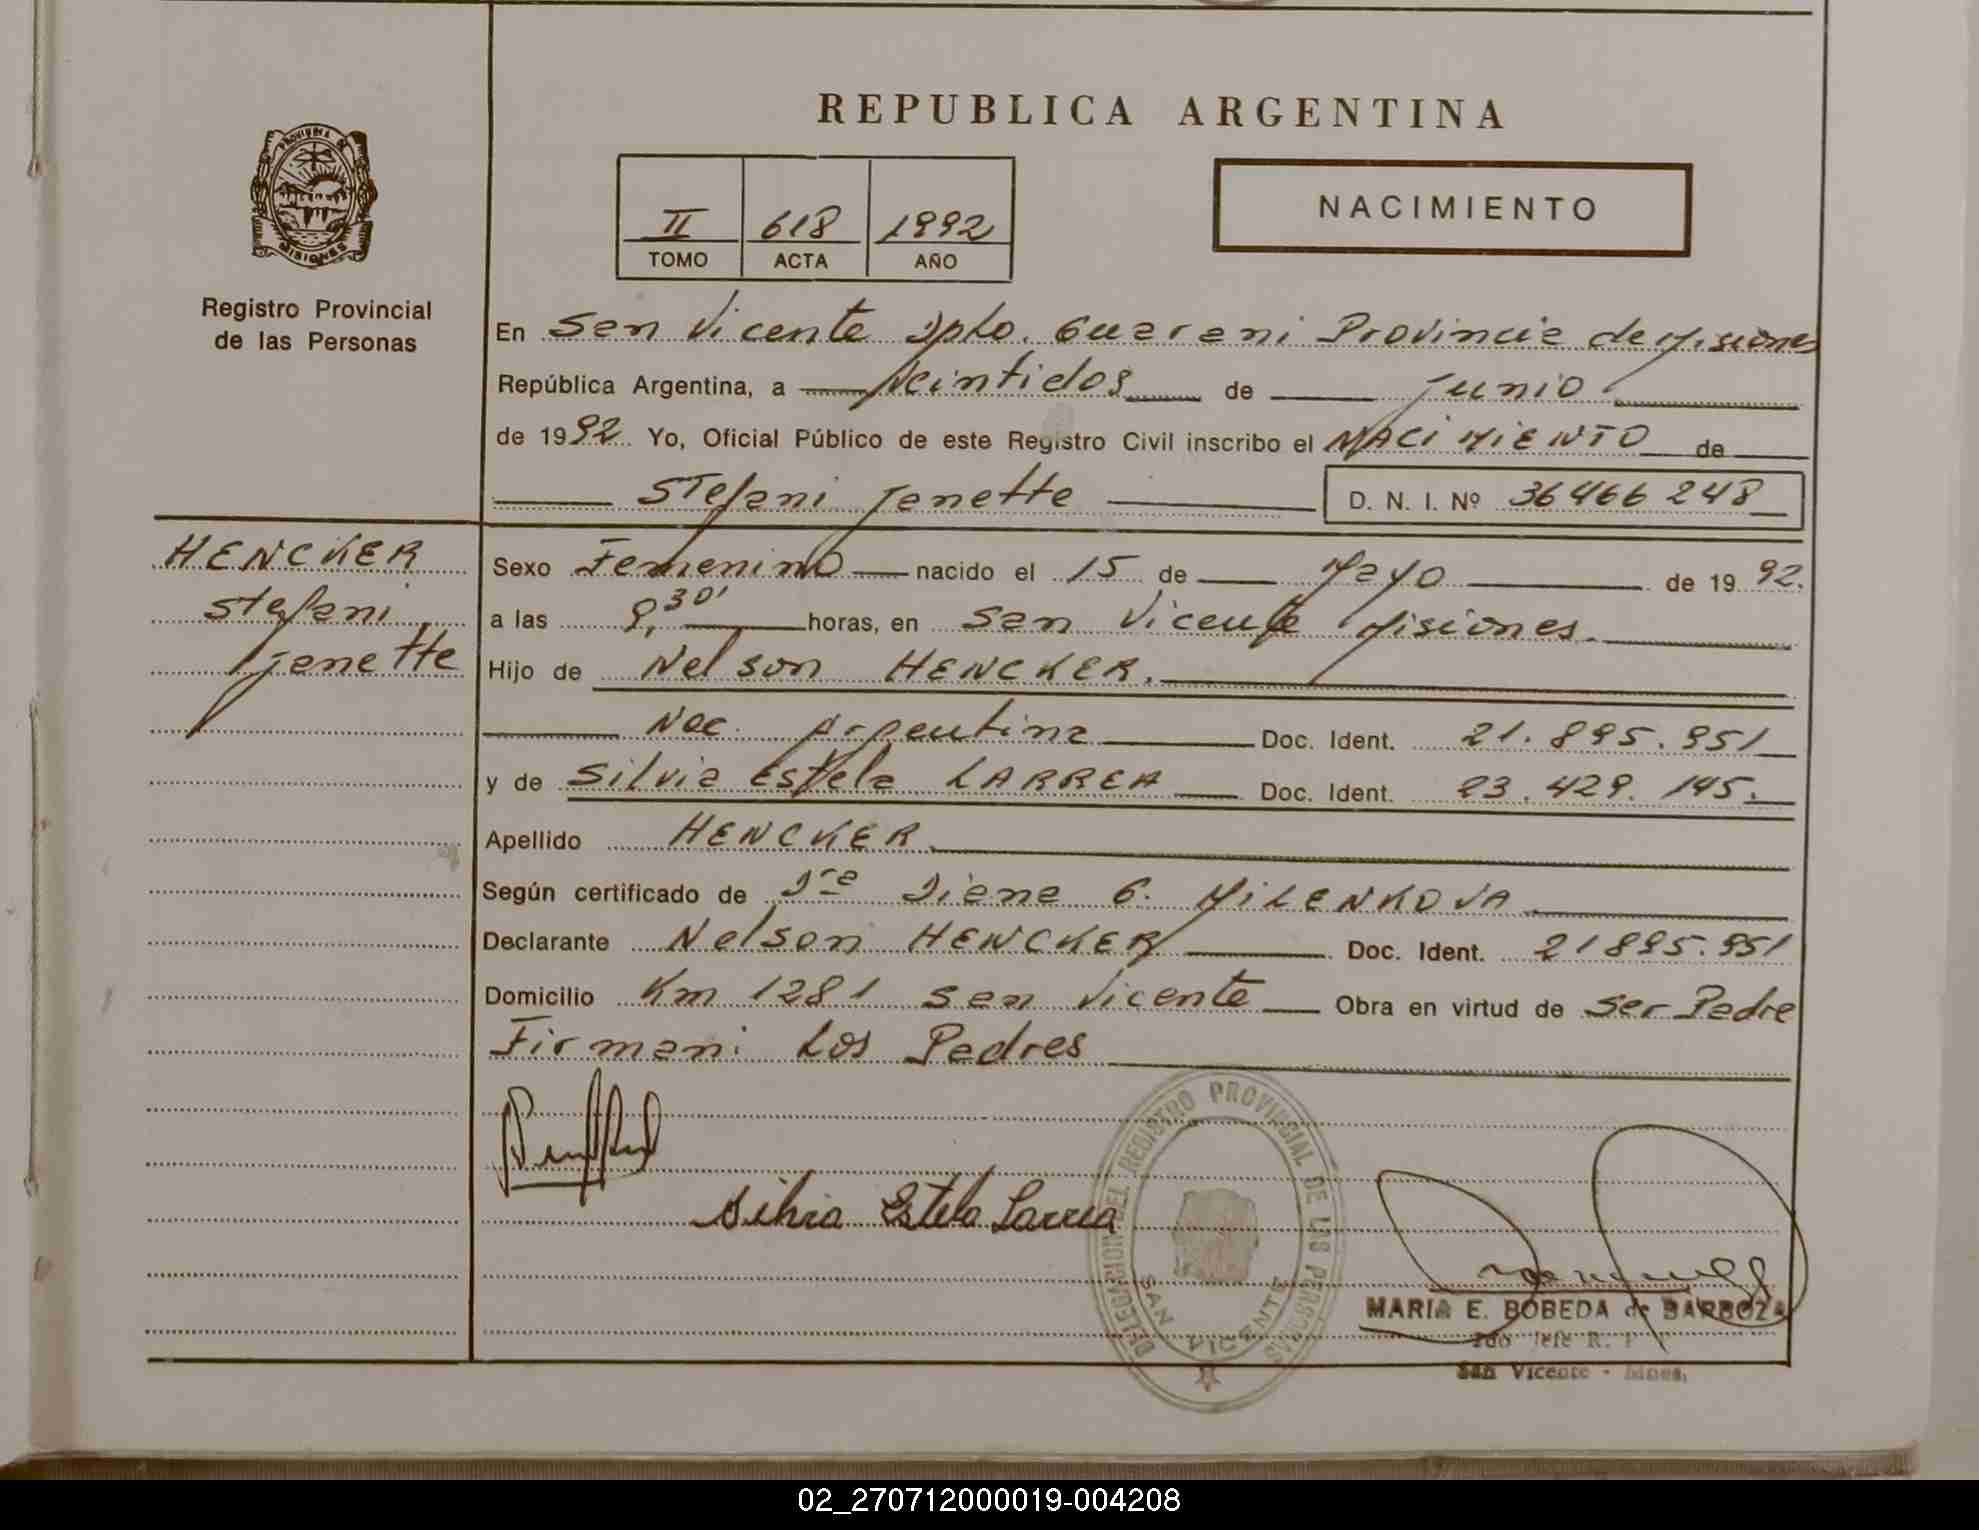 REPUBLICA ARGENTINA
PROVINCIA DE
MISIONES
Registro Provincial
de las Personas
II 618 1992
TOMO ACTA AÑO
NACIMIENTO
En San Vicente Dpto. Guarani Provincia de Misiones
República Argentina, a Veintidos de Junio
de 1992. Yo, Oficial Público de este Registro Civil inscribo el NACIMIENTO de
Stefani Janette D. N. I. Nº 36466248
HENCKER
Stefani
Janette
Sexo Femenino nacido el 15 de Mayo de 1992.
a las 9,30' horas, en San Vicente Misiones.
Hijo de Nelson HENCKER.
Nac. Argentina Doc. Ident. 21.895.951
y de Silvia Estela LARREA Doc. Ident. 23.429.145.
Apellido HENCKER
Según certificado de Dra Diana G. MILENKOVA
Declarante Nelson HENCKER Doc. Ident. 21895.951
Domicilio Km 1281 San Vicente Obra en virtud de Ser Padre
Firman: Los Padres
Silvia Estela Larrea
DELEGACION DEL REGISTRO PROVINCIAL DE LAS PERSONAS
SAN VICENTE
MARIA E. BOBEDA de BARBOZA
2do Jefe R. P.
San Vicente - Mnes.
02_270712000019-004208